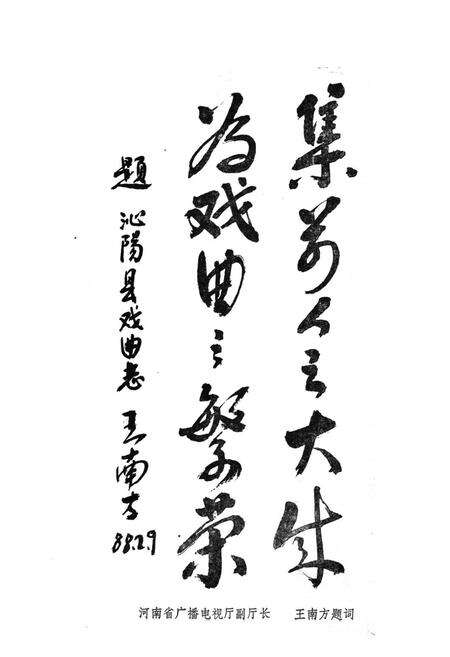 集前人之大成
为戏曲之繁荣
题 沁陽县戏曲志 王南方
88.2.9
河南省广播电视厅副厅长 王南方题词